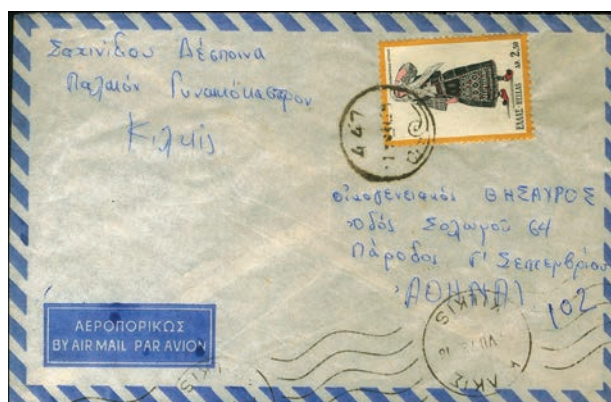 Σαχινίδου Δέσποινα
Παλαιόν Γυναικόκαστρον
Κιλκίς
ΕΛΛΑΣ-HELLAS ΔΡ. 2.50
447
οἰκογενειακός ΘΗΣΑΥΡΟΣ
Ὁδός Σολωμού 64
Πάροδος Γ' Σεπτεμβρίου
ΑΘΗΝΑΙ
102
ΑΕΡΟΠΟΡΙΚΩΣ
BY AIR MAIL PAR AVION
KILKIS